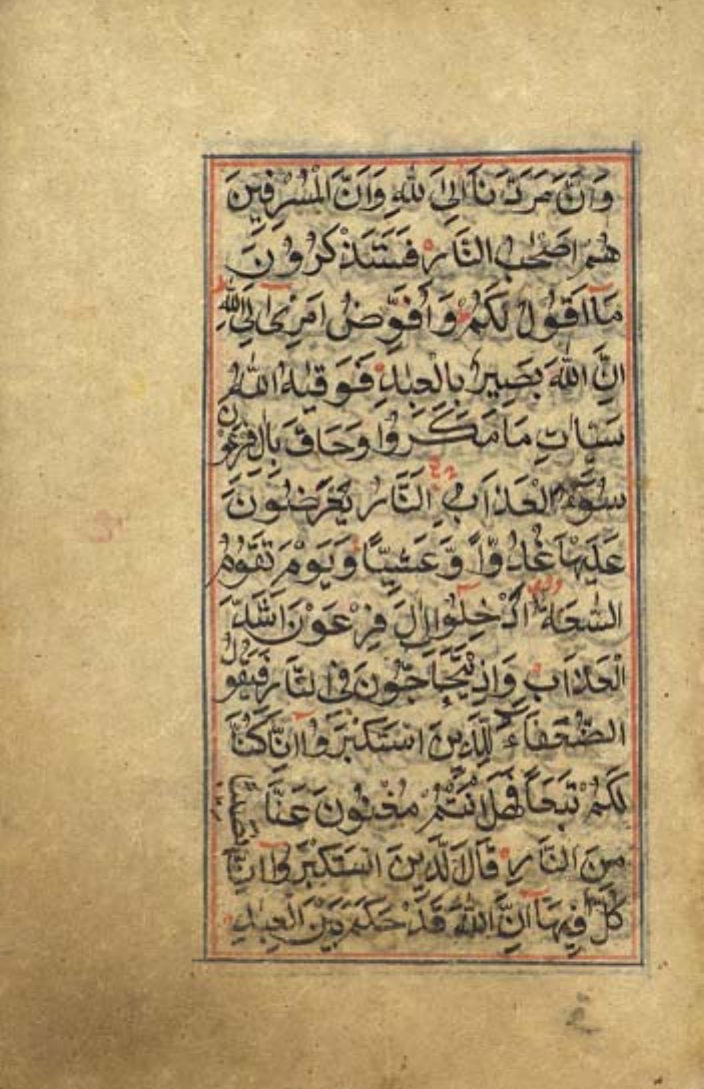 وَاَنَّ مَرَدَّنَا اِلَى اللّٰهِ وَاَنَّ الْمُسْرِفِينَ
هُمْ اَصْحٰبُ النَّارِ فَسَتَذْكُرُونَ
مَا اَقُولُ لَكُمْ وَاُفَوِّضُ اَمْرِى اِلَى اللّٰهِ
اِنَّ اللّٰهَ بَصِيرٌ بِالْعِبَادِ فَوَقٰىهُ اللّٰهُ
سَيِّاٰتِ مَا مَكَرُوا وَحَاقَ بِاٰلِ فِرْعَوْنَ
سُوٓءُ الْعَذَابِ اَلنَّارُ يُعْرَضُونَ
عَلَيْهَا غُدُوًّا وَّعَشِيًّا وَيَوْمَ تَقُومُ
السَّاعَةُ اَدْخِلُوا اٰلَ فِرْعَوْنَ اَشَدَّ
الْعَذَابِ وَاِذْ يَتَحَاجُّونَ فِى النَّارِ فَيَقُولُ
الضُّعَفَاءُ لِلَّذِينَ اسْتَكْبَرُوا اِنَّا كُنَّا
لَكُمْ تَبَعًا فَهَلْ اَنْتُمْ مُغْنُونَ عَنَّا نَصِيبًا
مِنَ النَّارِ قَالَ الَّذِينَ اسْتَكْبَرُوا اِنَّا
كُلٌّ فِيهَا اِنَّ اللّٰهَ قَدْ حَكَمَ بَيْنَ الْعِبَادِ